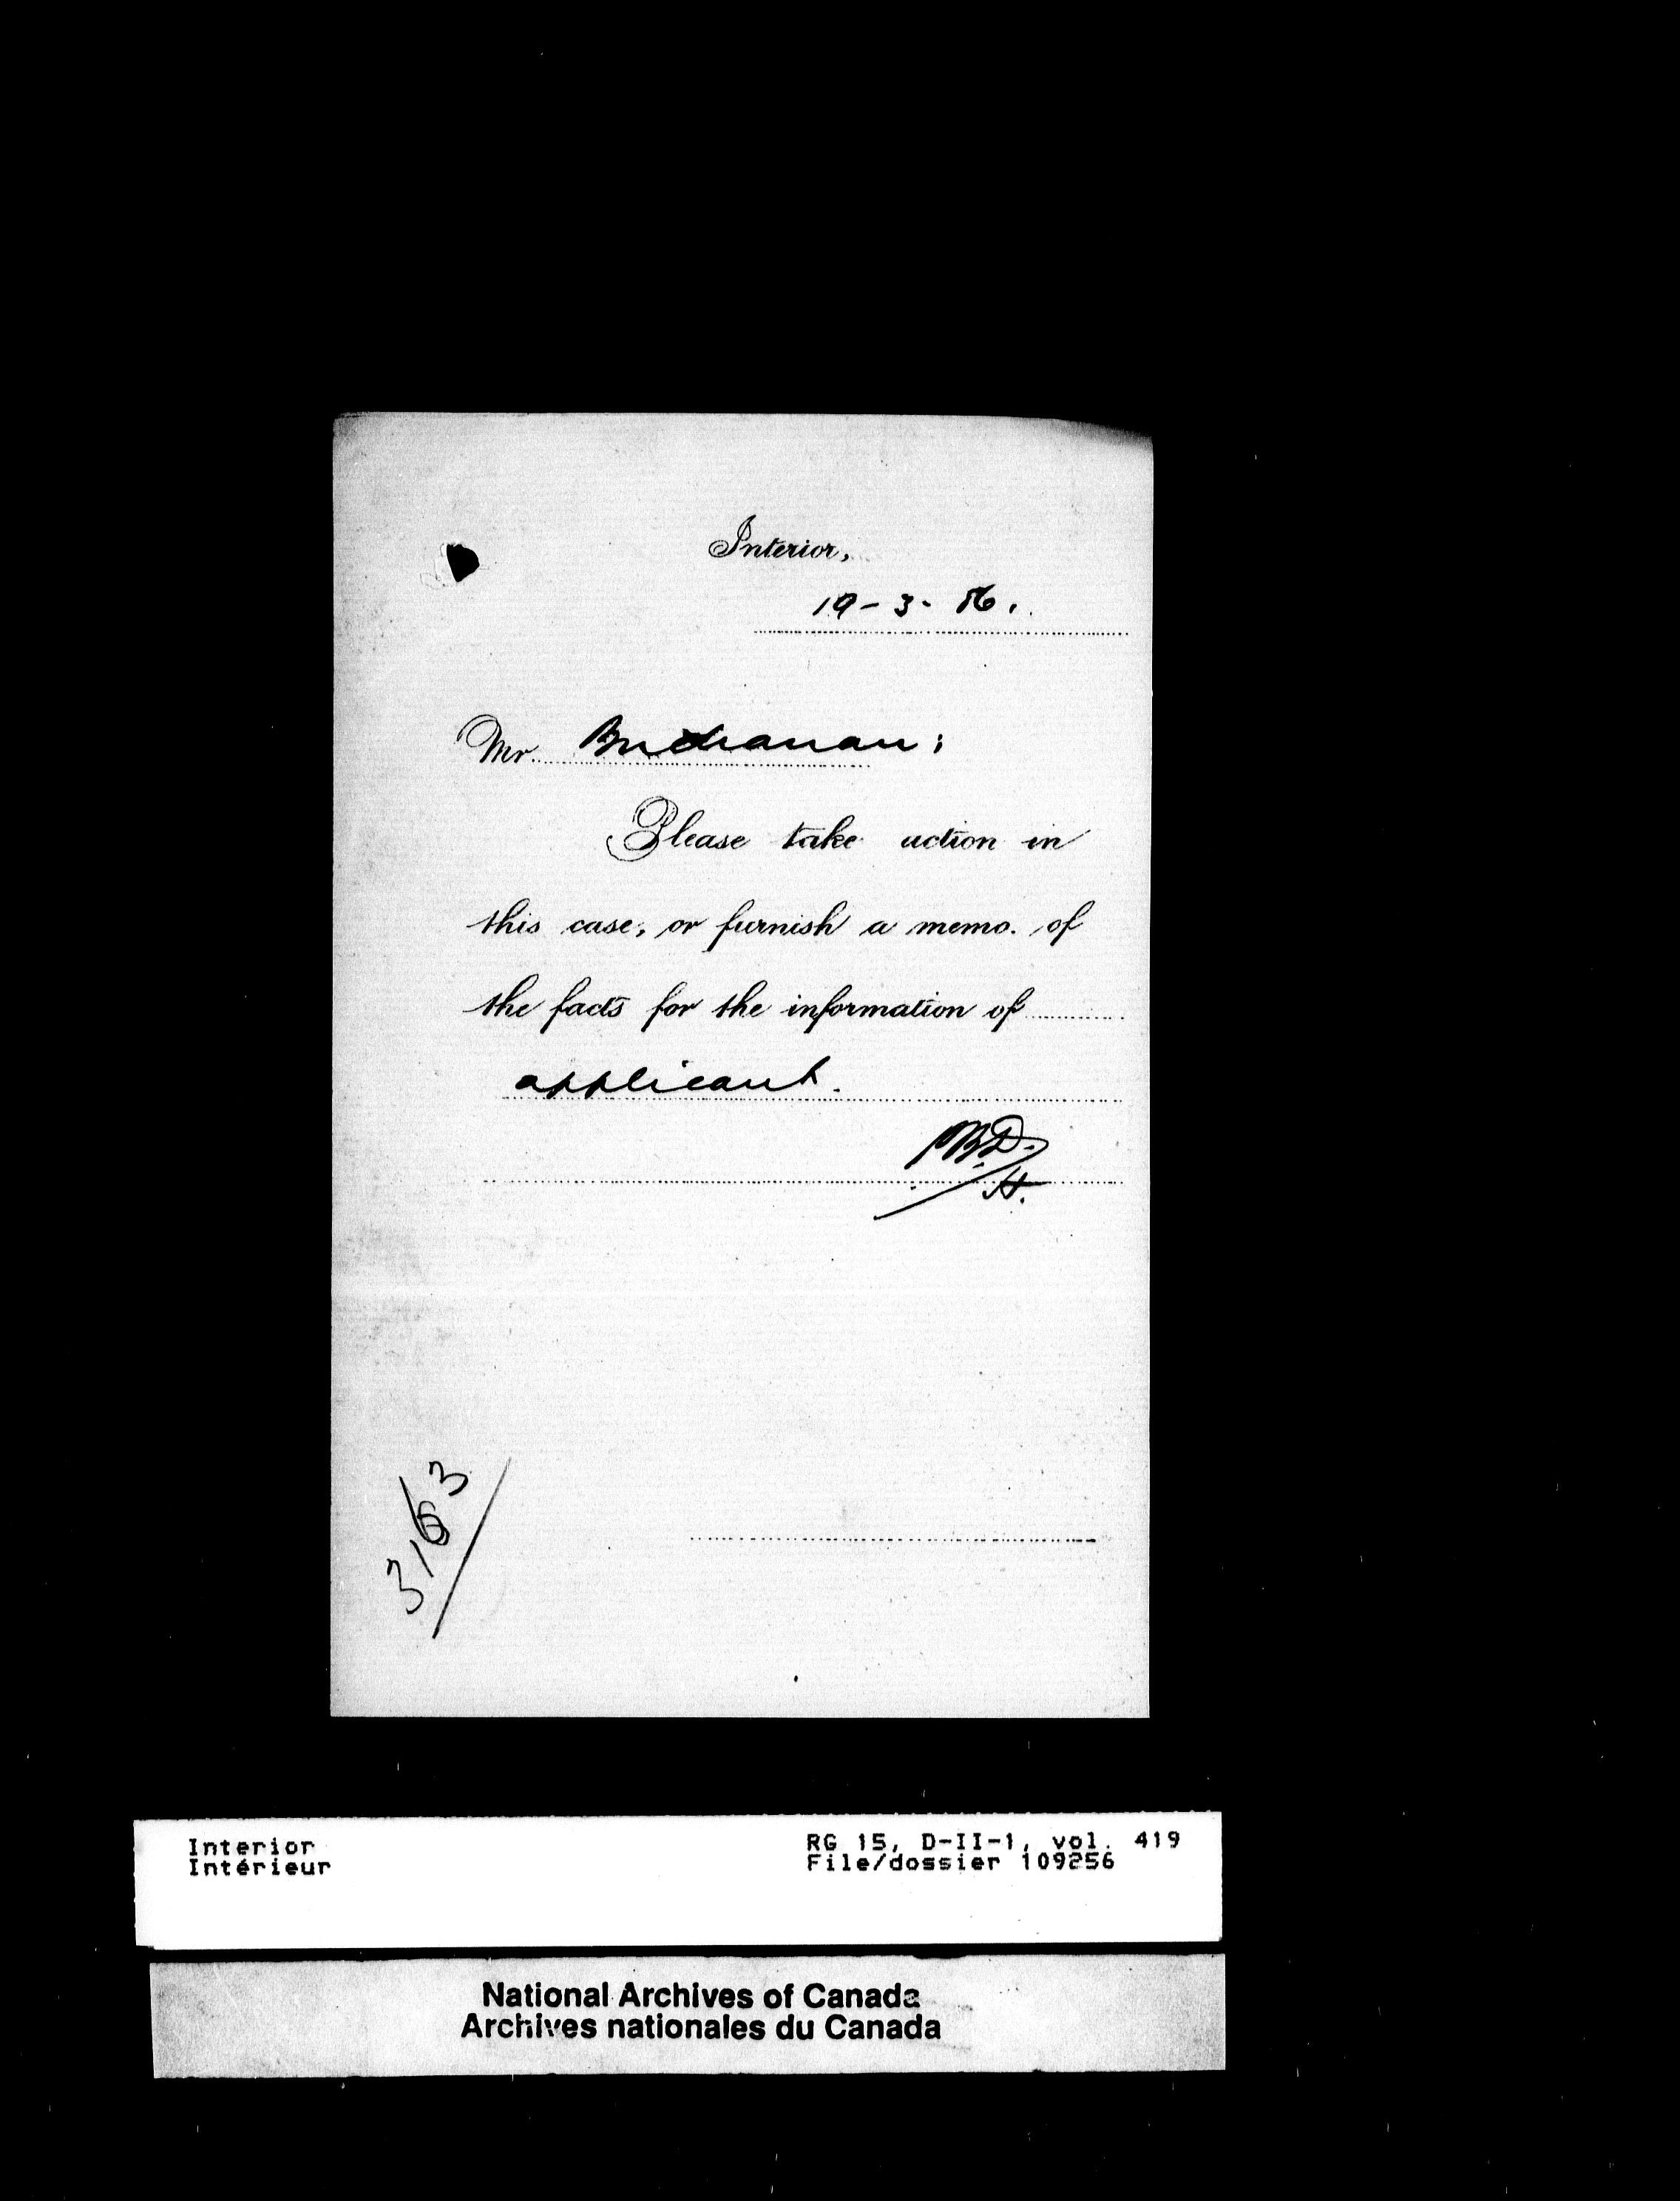 Interior,
19-3-86.
Mr. Buchanan;
Please take action in
this case, or furnish a memo. of
the facts for the information of
applicant.
H.
3163
Interior
Intérieur
RG 15, D-II-1, vol. 419
File/dossier 109256
National Archives of Canada
Archives nationales du Canada